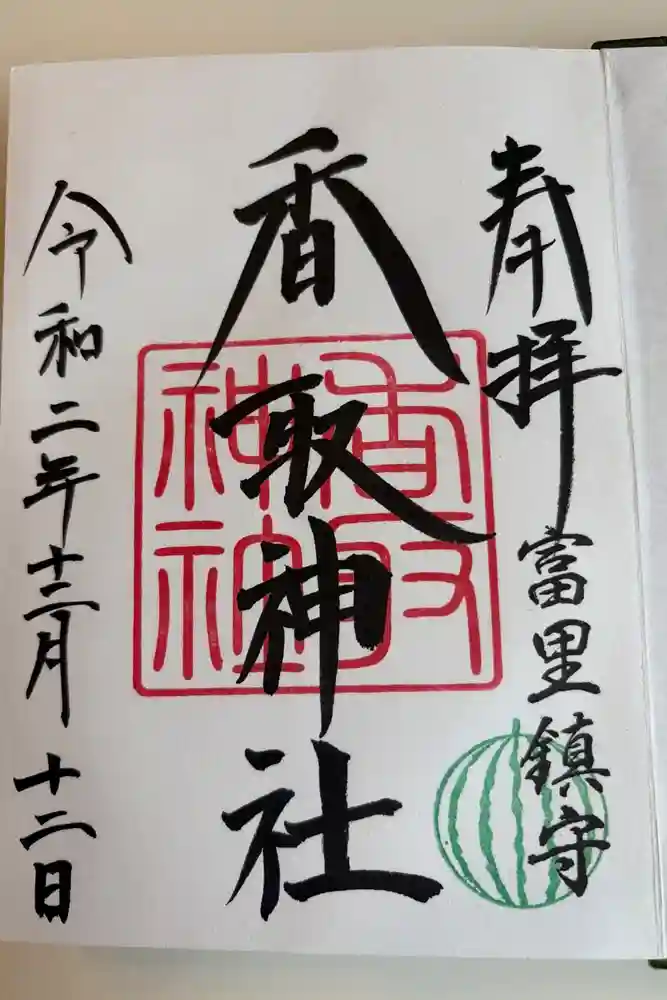 奉拝
富里鎮守
香取神社
香取
神社
令和二年十二月十二日